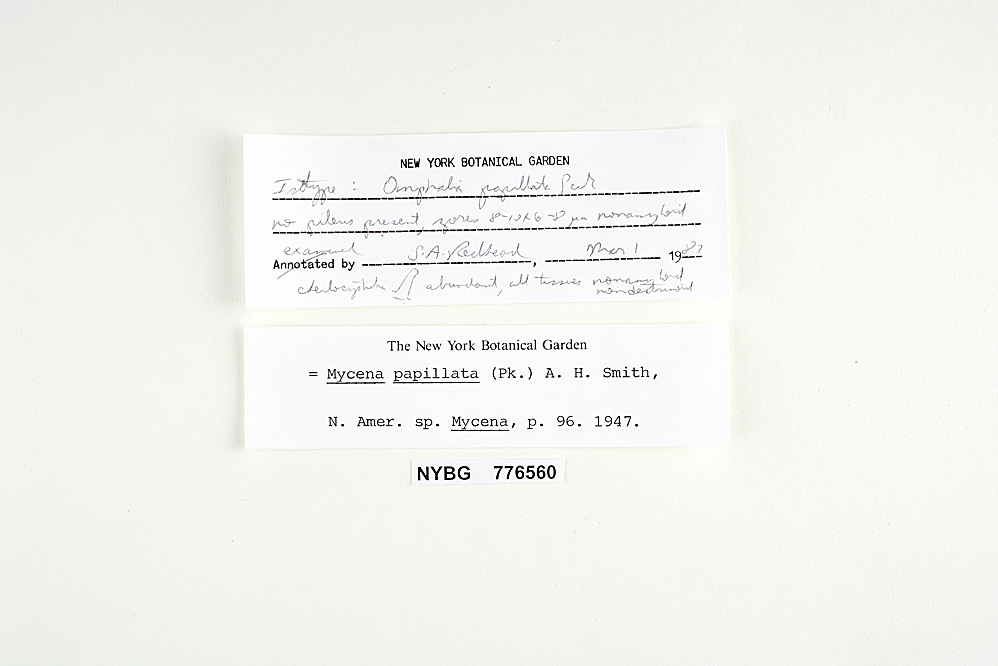 NEW YORK BOTANICAL GARDEN
Isotype : Omphalia papillata Peck
no pileus present, spores 8-10x6-8 µm nonamyloid
examined
Annotated by S.A. Redhead, Mar 1 1983
cheilocystidia abundant, all tissues nonamyloid
nondextrinoid
The New York Botanical Garden
= Mycena papillata (Pk.) A. H. Smith,
N. Amer. sp. Mycena, p. 96. 1947.
NYBG 776560